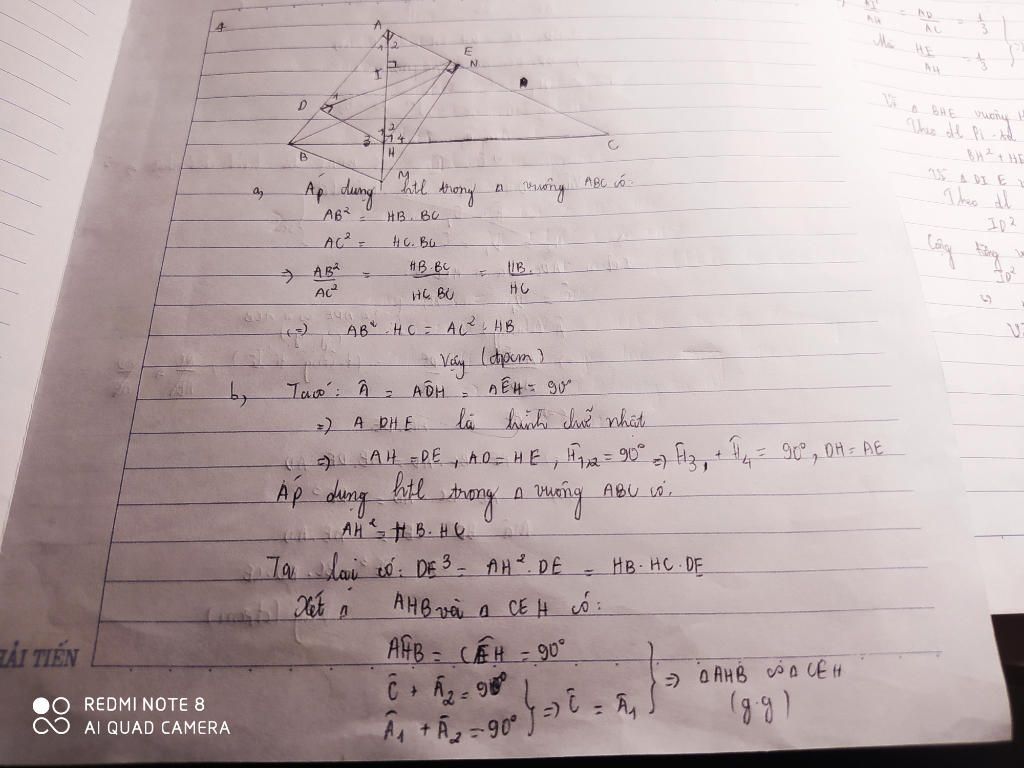 4
A
1 2
E
N
I
D 1
1 2
3 4
B H C
M
a, Áp dụng htl trong Δ vuông ABC có.
AB² = HB.BC
AC² = HC.BC
⇒ AB²/AC² = HB.BC/HC.BC = HB/HC
(⇒) AB².HC = AC².HB
Vậy (đpcm)
b, Ta có: Â = AD̂H = AÊH = 90°
⇒) A DHE là hình chữ nhật
⇒) AH = DE, AD = HE, Ĥ1,2 = 90° ⇒ Ĥ3, + Ĥ4 = 90°, DH = AE
Áp dụng htl trong Δ vuông ABC có.
AH² = HB.HC
Ta lại có: DE³ = AH².DE = HB.HC.DE
Xét Δ AHB và Δ CEH có:
AĤB = CÊH = 90°
Ĉ + Â2 = 90°
Â1 + Â2 = 90°
⇒) Ĉ = Â1
⇒) ΔAHB ∽ ΔCEH
(g.g)
AI/AH = AD/AC = 1/3
Mà HE/AH = 1/3
Vì Δ BHE vuông
Theo đl Pi-ta
BH² + HE
Vì Δ DIE
Theo đl
ID²
Cộng từng
ID²
HẢI TIẾN
REDMI NOTE 8
AI QUAD CAMERA